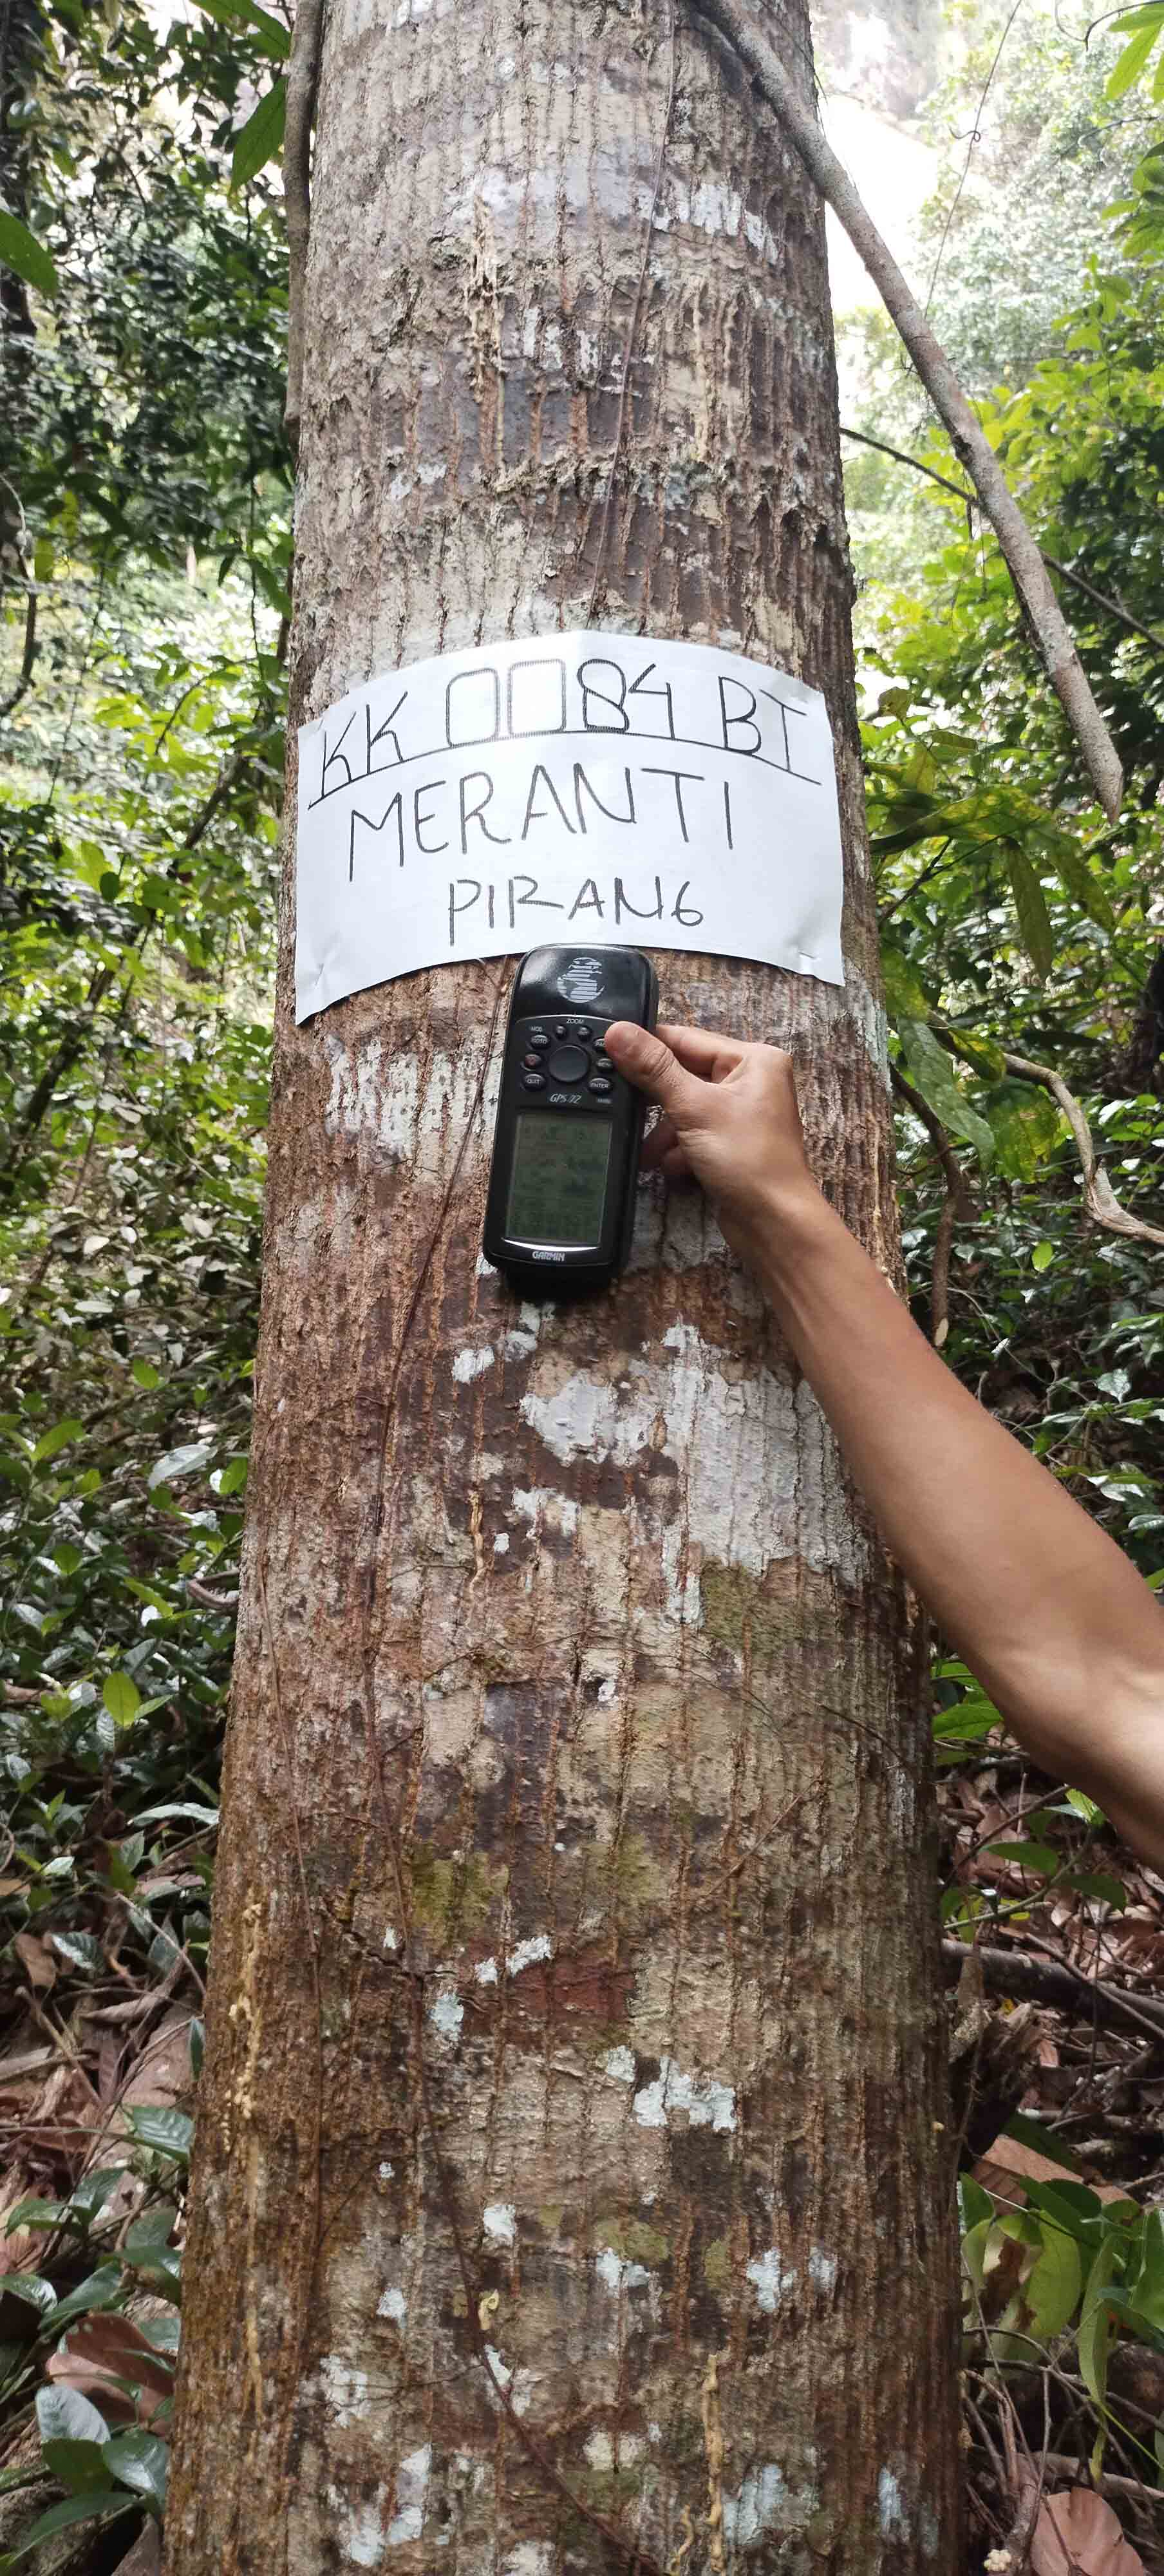 KK 0084 BT
MERANTI
PIRANG
ZOOM
MOB
GOTO
QUIT
ENTER
GPS 72
GARMIN